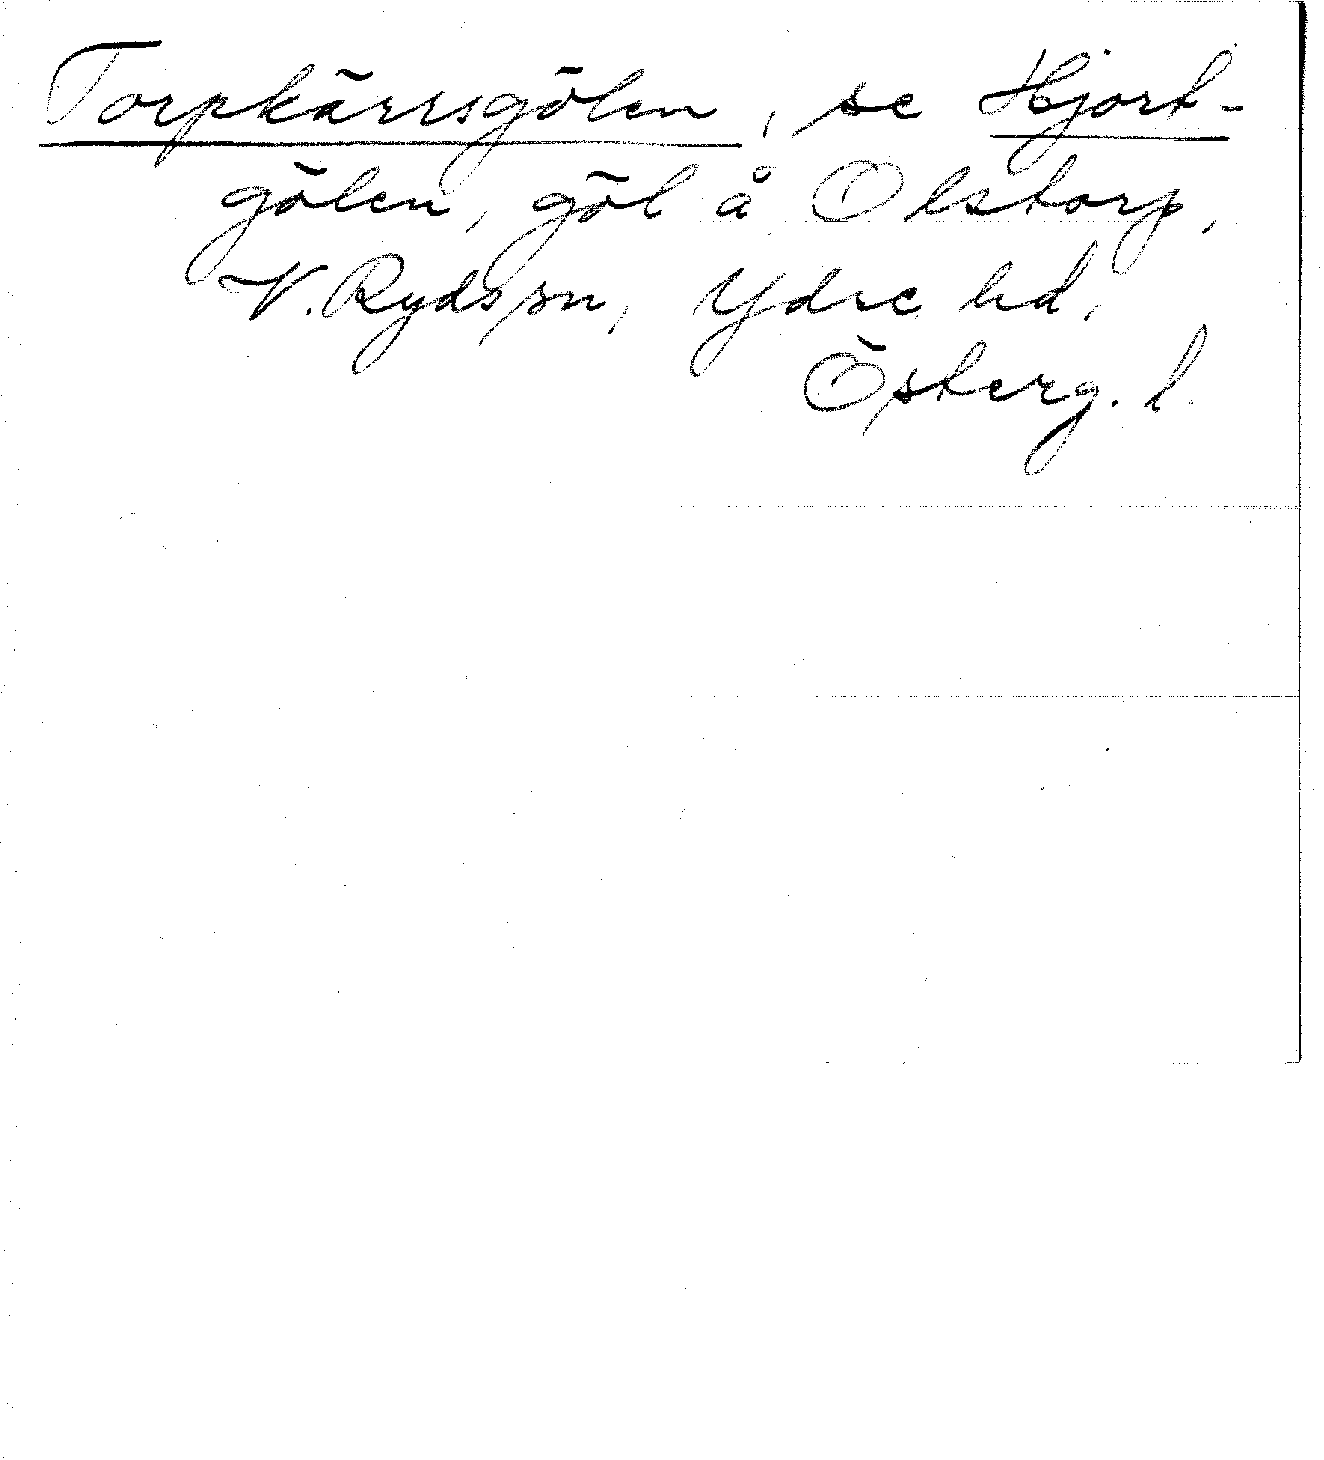 Torpkärrsgölen, se Hjort-
gölen, göl å Olstorp,
N. Ryds sn, Ydre hd,
Österg. l.